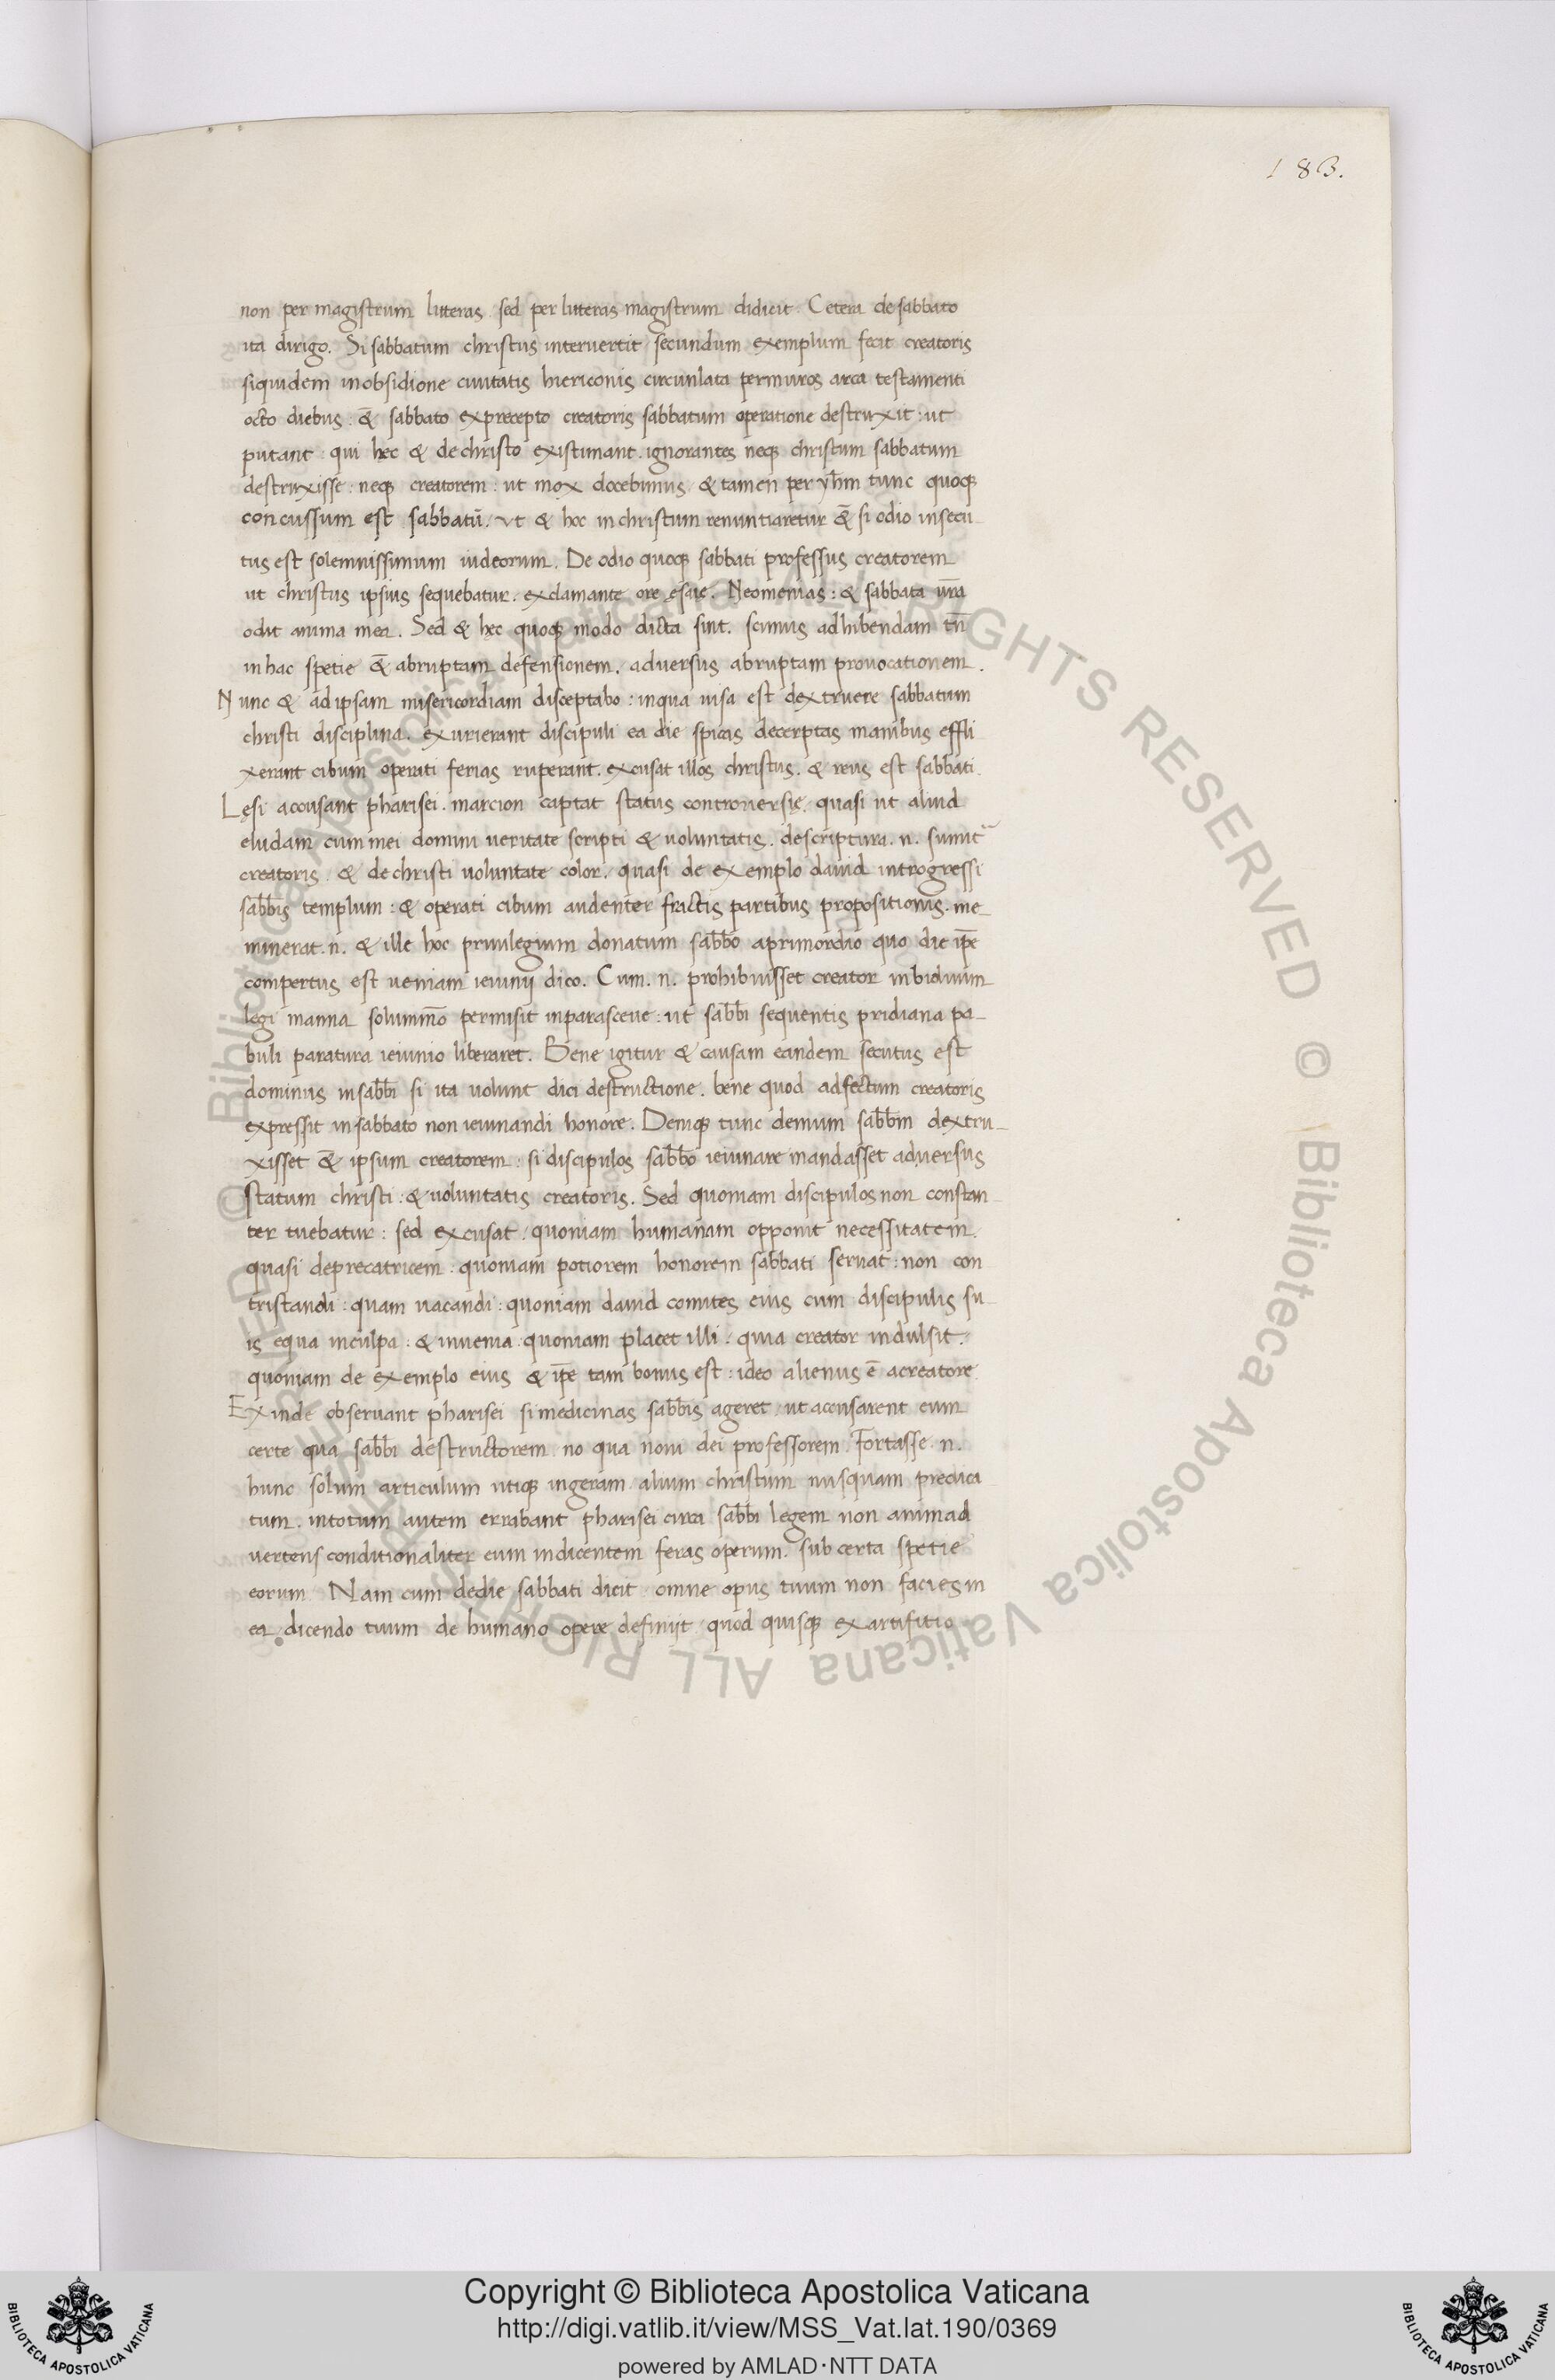 183.
non per magistrum litteras sed per litteras magistrum didicit. Cetera de sabbato
ita dirigo. Si sabbatum christus intervertit secundum exemplum fecit creatoris
siquidem inobsidione civitatis hiericonis circunlata permuros arca testamenti
octo diebus : & sabbato exprecepto creatoris sabbatum operatione destruxit : ut
putant : qui hec & dechristo existimant. ignorantes neq; christum sabbatum
destruxisse : neq; creatorem : ut mox docebimus. & tamen per yhm̄ tunc quoq;
concussum est sabbatū. ut & hoc inchristum renuntiaretur &̄ si odio insecu-
tus est solemnissimum iudeorum. De odio quoq; sabbati professus creatorem
ut christus ipsius sequebatur. exclamante ore ęsaię. Neomenias : & sabbata ur̄a
odit anima mea. Sed & hęc quoq; modo dicta sint. scimus adhibendam tn̄
inhac spetie &̄ abruptam defensionem. adversus abruptam provocationem.
Nunc & adipsam misericordiam disceptabo : inqua uisa est dextruere sabbatum
christi disciplina. exurierant discipuli ea die spicas decerptas manibus effli
xerant cibum operati ferias ruperant. excusat illos christus. & reus est sabbati.
Lęsi accusant pharisei. marcion captat status controversię. quasi ut aliud
eludam cum mei domini veritate scripti & voluntatis. descriptura .n. sumit᷑
creatoris & dechristi voluntate color. quasi de exemplo david introgressi
sabb̄is templum : & operati cibum audenter fractis partibus propositionis. me-
minerat .n. & ille hoc privilegium donatum sabb̄o aprimordio quo die ip̄e
compertus est veniam ieiunij dico. Cum .n. prohibuisset creator inbiduum
legi manna solummō permisit inparasceve : ut sabb̄i sequentis pridiana pa-
buli paratura ieiunio liberaret. Bene igitur & causam eandem secutus est
dominus insabb̄i si ita volunt dici destructione. bene quod adfectum creatoris
expressit insabbato non ieiunandi honore. Deniq; tunc demum sabb̄m dextru-
xisset &̄ ipsum creatorem : si discipulos sabb̄o ieiunare mandasset adversus
statum christi : & voluntatis creatoris. Sed quoniam discipulos non constan-
ter tuebatur : sed excusat : quoniam humanam opponit necessitatem.
quasi deprecatricem : quoniam potiorem honorem sabbati servat : non con
tristandi : quam vacandi : quoniam david comites eius cum discipulis su-
is equa inculpa : & invenia quoniam placet illi : quia creator indulsit.
quoniam de exemplo eius & ip̄e tam bonus est : ideo alienus ē acreatore.
Exinde observant pharisei si medicinas sabb̄is ageret ut accusarent eum
certe qua sabb̄i destructorem no qua novi dei professorem. Fortasse .n.
hunc solum articulum utiq; ingeram alium christum nusquam predica
tum. intotum autem errabant pharisei circa sabb̄i legem non animad
vertens conditionaliter eum indicentem feras operum. sub certa spetie
eorum. Nam cum dedie sabbati dicit omne opus tuum non facies in
ea. dicendo tuum de humano opere definijt quod quisq; exartifitio
Copyright © Biblioteca Apostolica Vaticana
http://digi.vatlib.it/view/MSS_Vat.lat.190/0369
powered by AMLAD·NTT DATA
BIBLIOTECA APOSTOLICA VATICANA
BIBLIOTECA APOSTOLICA VATICANA
© Biblioteca Apostolica Vaticana ALL RIGHTS RESERVED © Biblioteca Apostolica Vaticana ALL RIGHTS RESERVED